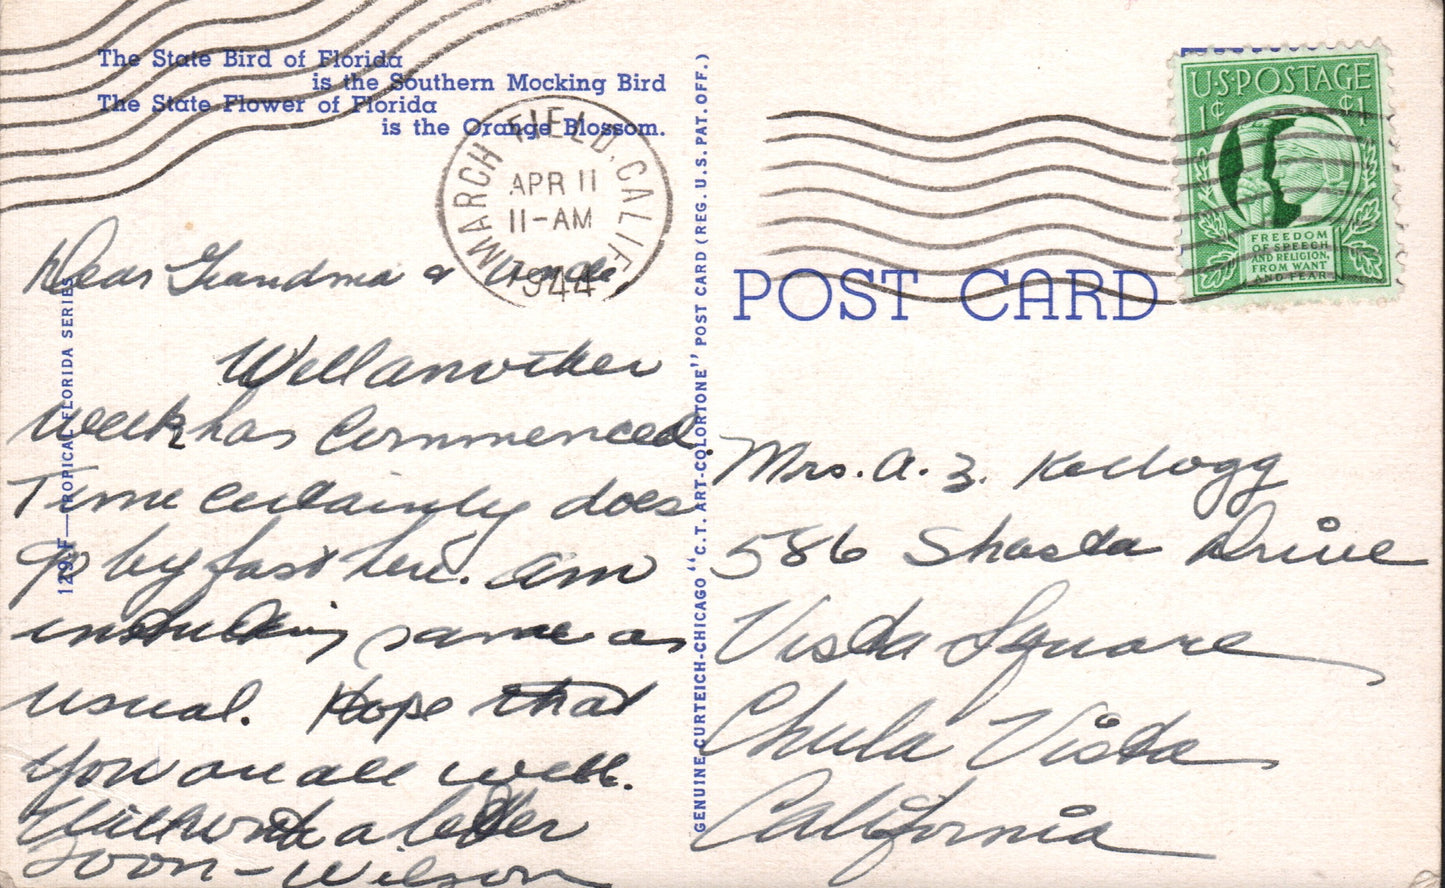 The State Bird of Florida
is the Southern Mocking Bird
The State Flower of Florida
is the Orange Blossom.
MARCH FIELD, CALIF.
APR 11
11-AM
1944
U.S. POSTAGE
1¢ ¢1
FREEDOM
OF SPEECH
AND RELIGION,
FROM WANT
AND FEAR
POST CARD
129 F—TROPICAL FLORIDA SERIES
GENUINE CURTEICH-CHICAGO "C.T. ART-COLORTONE" POST CARD (REG. U.S. PAT. OFF.)
Dear Grandma &
Well another
week has commenced.
Time certainly does
go by fast here. Am
instructing same as
usual. Hope that
you are all well.
Will write a letter
soon - Wilson
Mrs. A. Z. Kellogg
586 Shasta Drive
Vista Square
Chula Vista
California